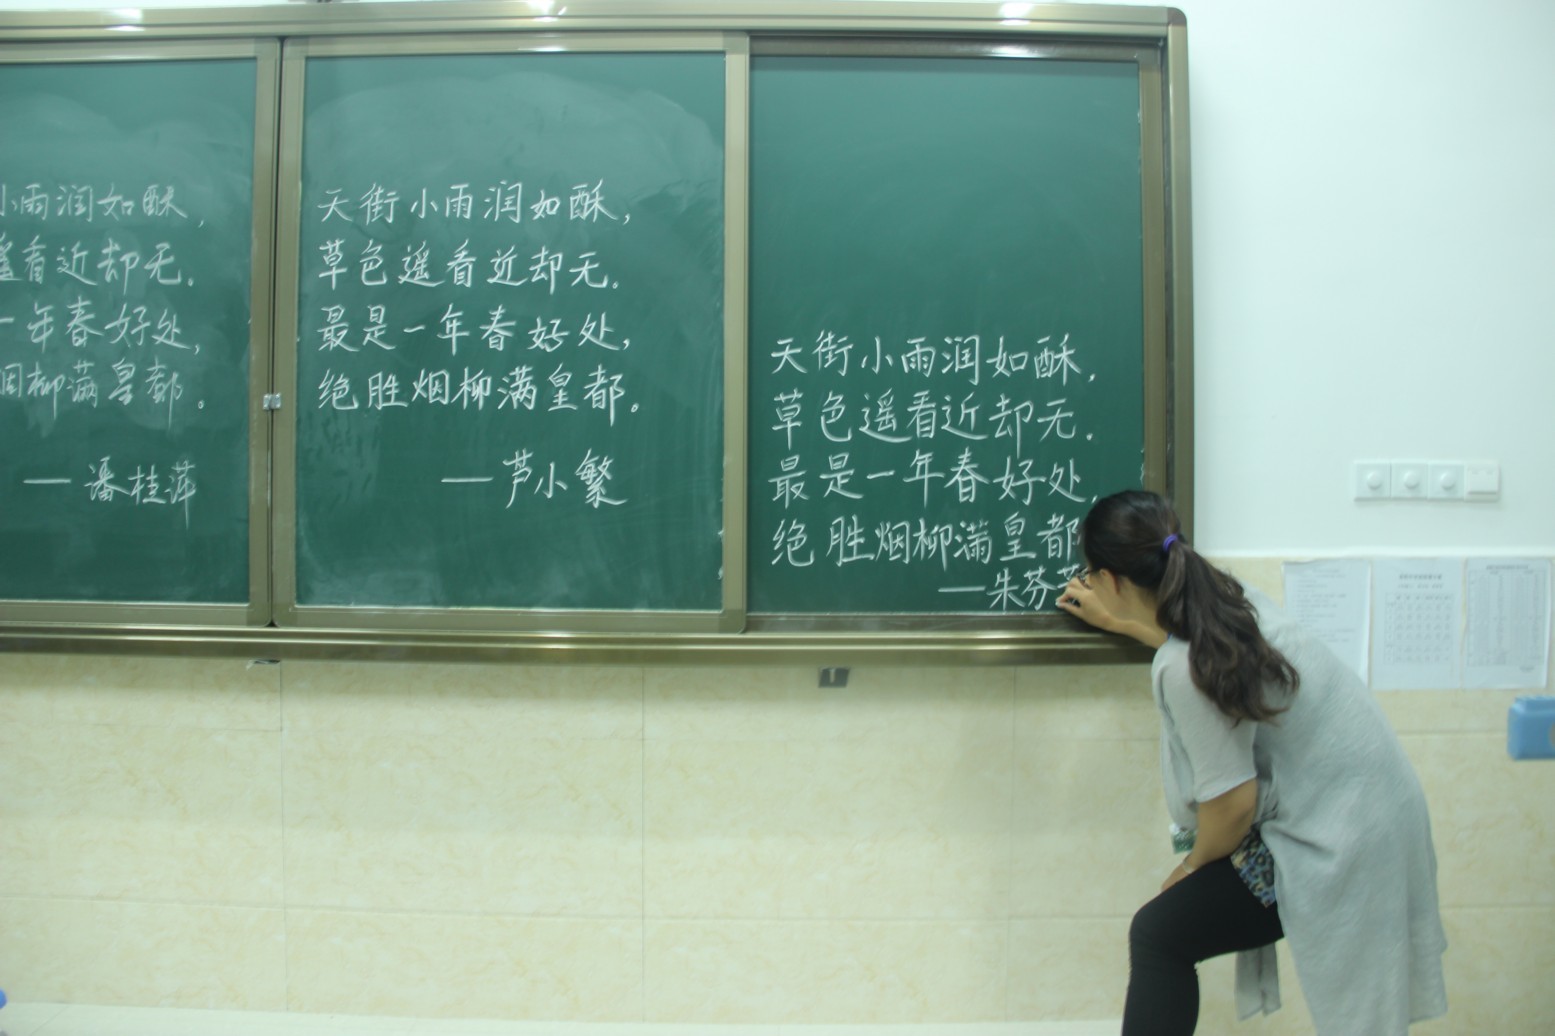 小雨润如酥,
遥看近却无.
一年春好处,
烟柳满皇都。
— 潘桂萍
天街小雨润如酥,
草色遥看近却无.
最是一年春好处,
绝胜烟柳满皇都。
— 芦小繁
天街小雨润如酥,
草色遥看近却无.
最是一年春好处,
绝胜烟柳满皇都
— 朱芬